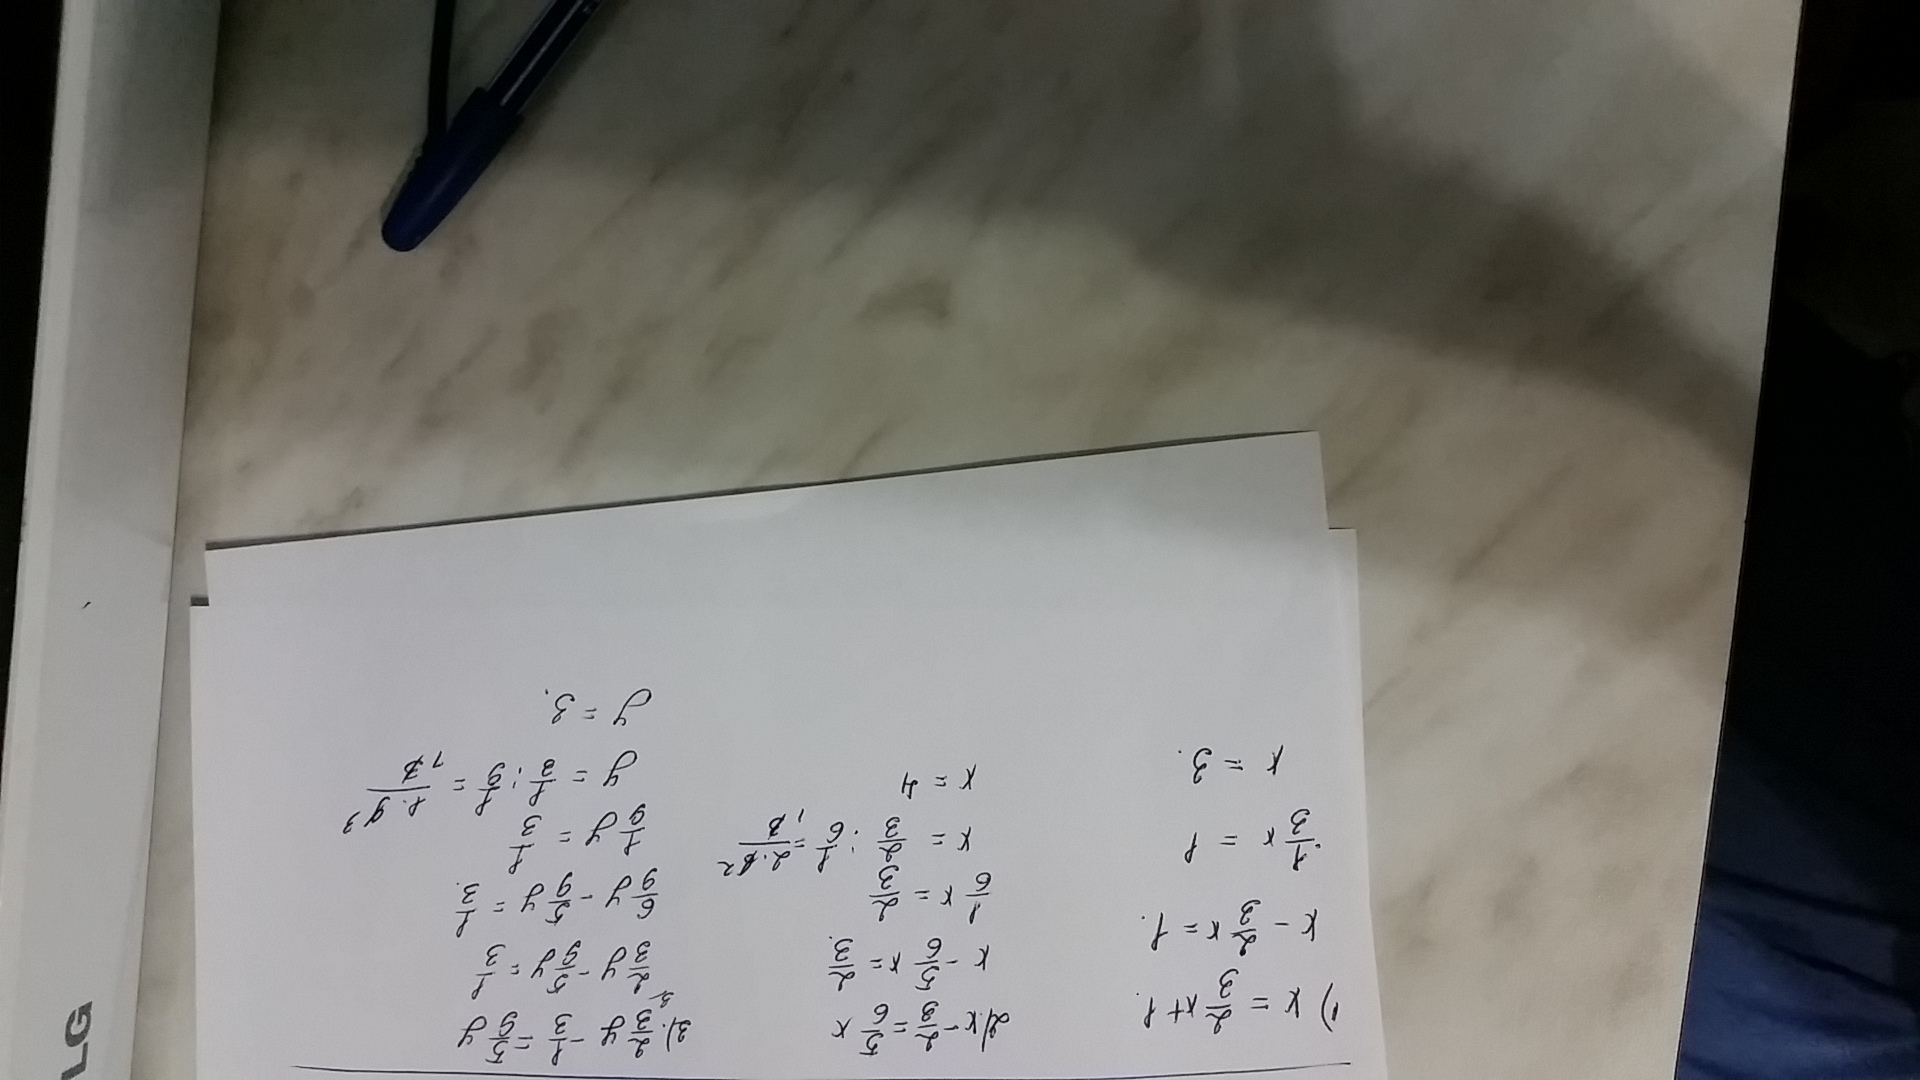 1) x = 2/3 x + 1.
x - 2/3 x = 1.
1/3 x = 1
x = 3.
2) x - 2/3 = 5/6 x
x - 5/6 x = 2/3.
1/6 x = 2/3
x = 2/3 : 1/6 = 2·6 2/3 1
x = 4
3). 2/3 y - 1/3 = 5/9 y
2/3 y - 5/9 y = 1/3
6/9 y - 5/9 y = 1/3.
1/9 y = 1/3
y = 1/3 : 1/9 = 1·9 3/3 1
y = 3.
LG